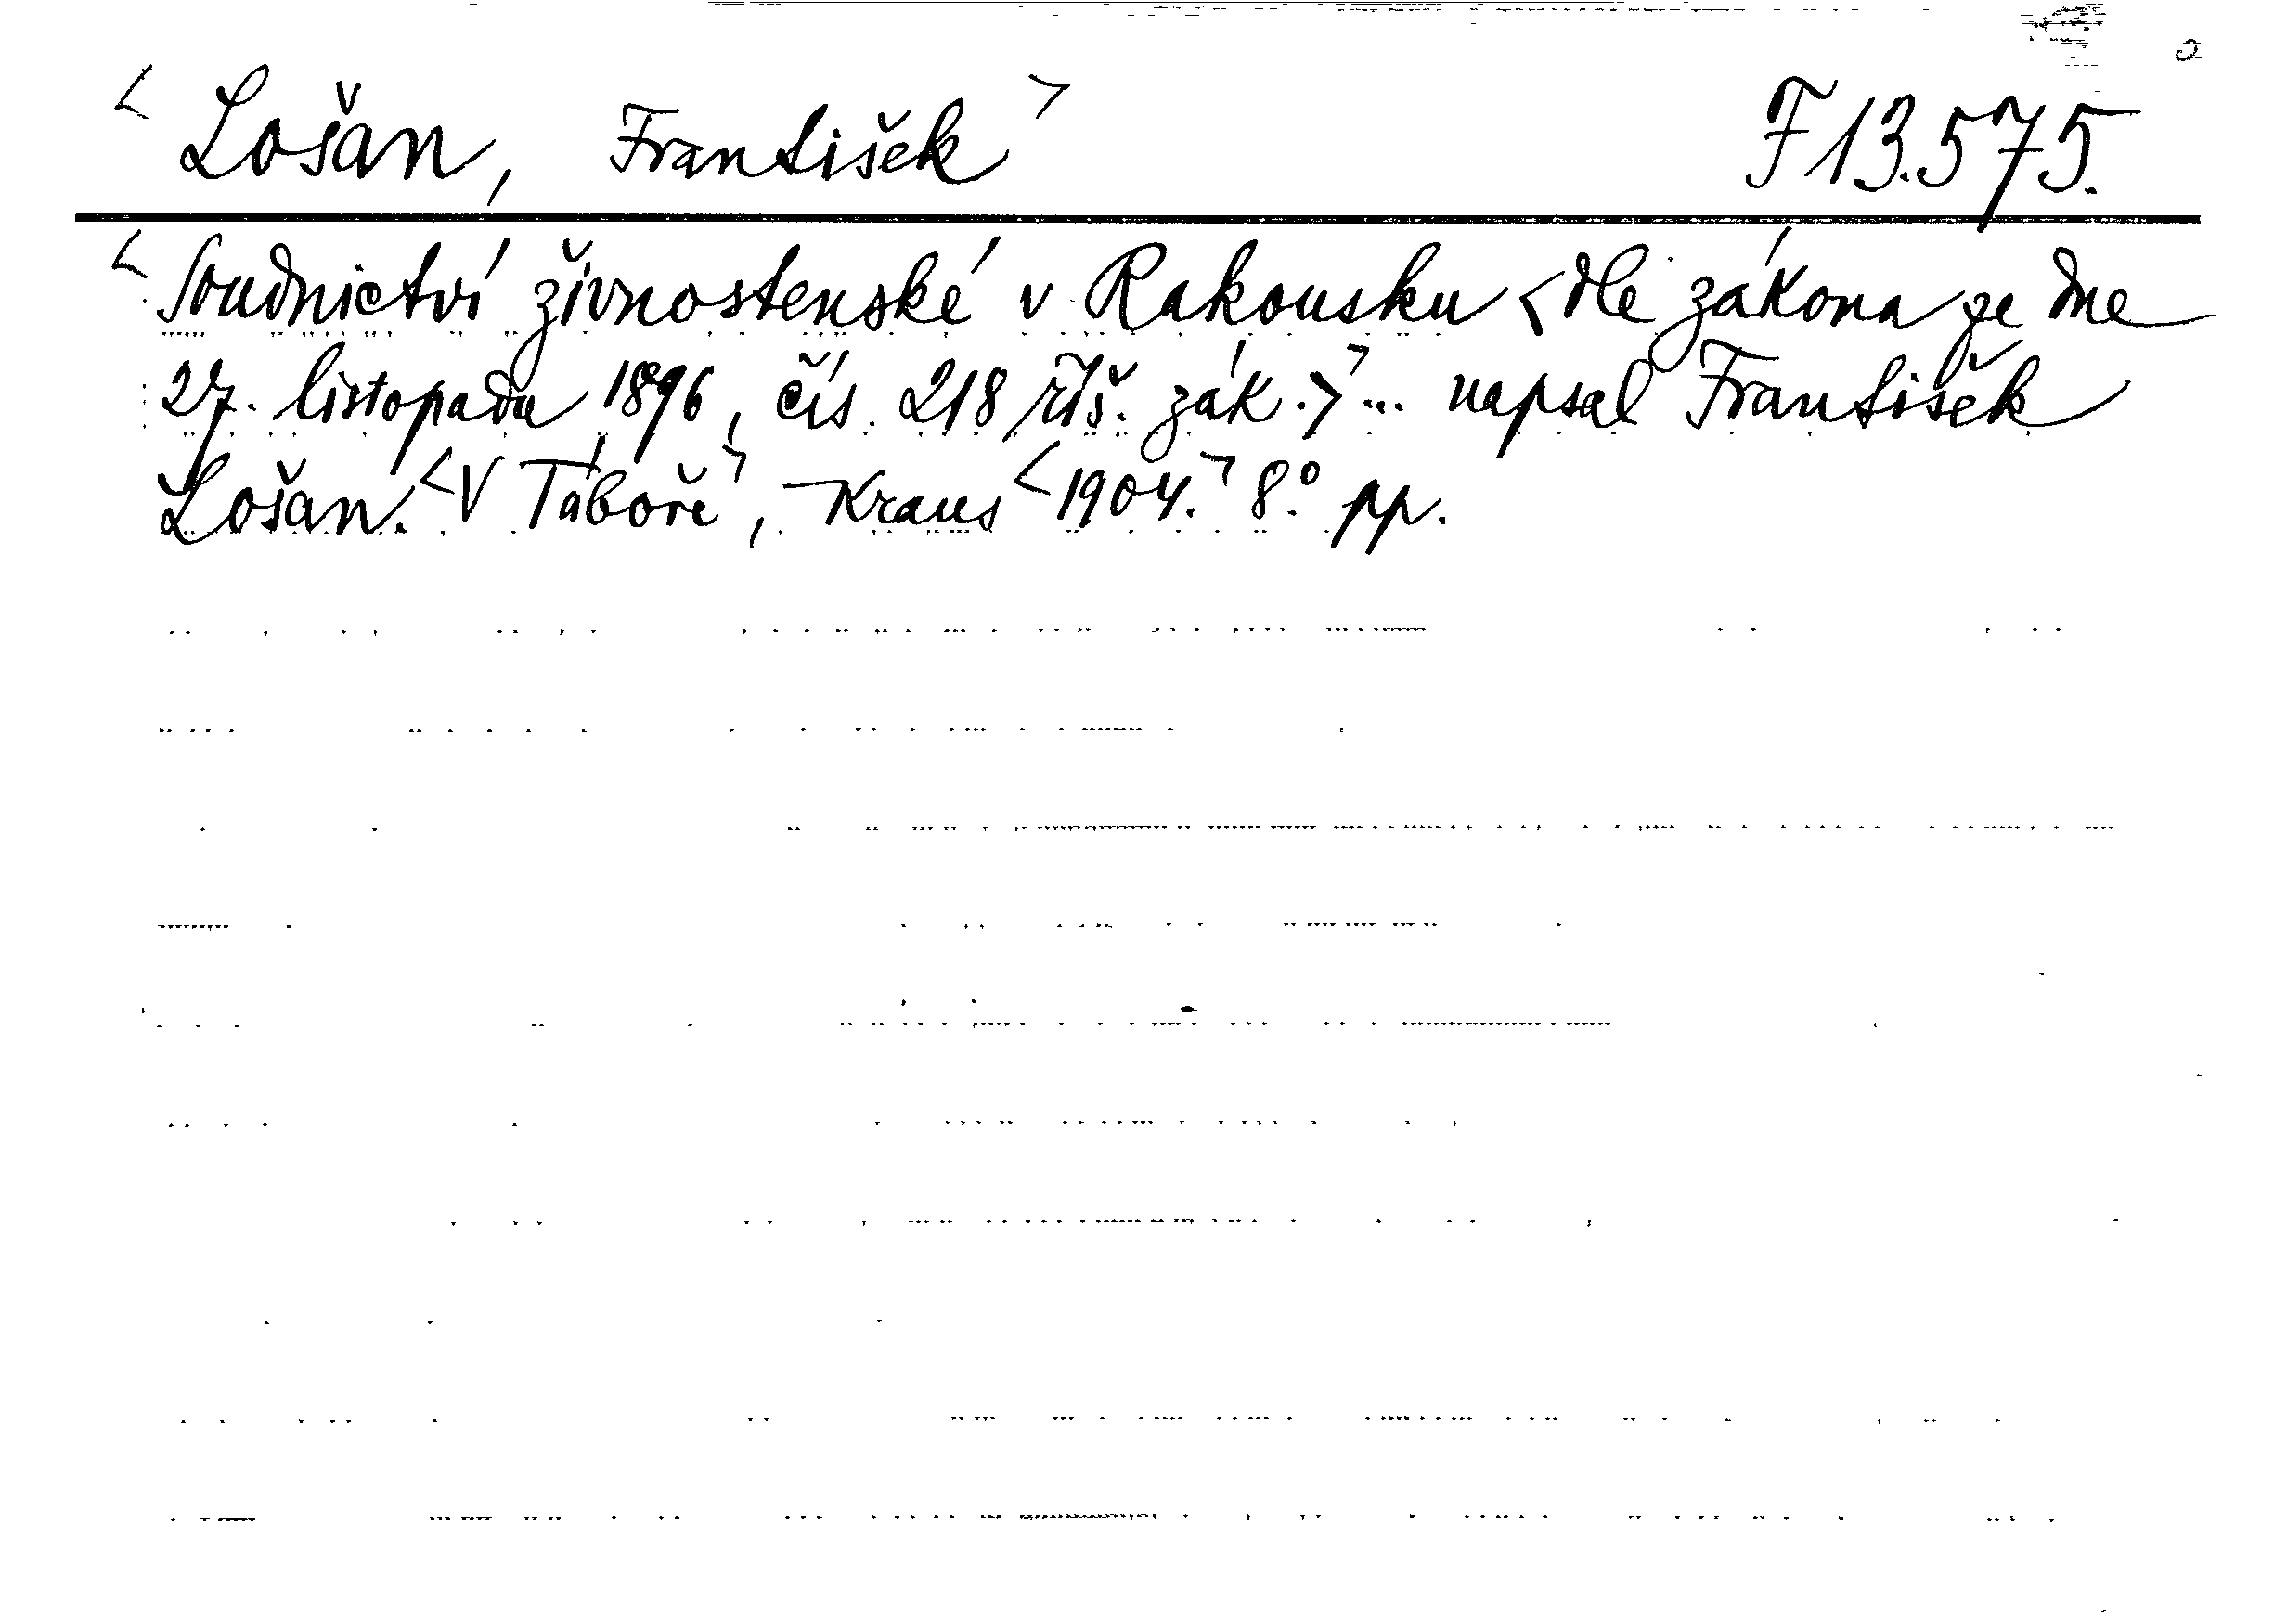 < Lošan, František > F 13.575.
< Soudnictví živnostenské v Rakousku < dle zákona ze dne
27. listopadu 1896, čís. 218 říš. zák. > > ... napsal František
Lošan. < V Táboře >, Kraus < 1904. > 8.° pp.